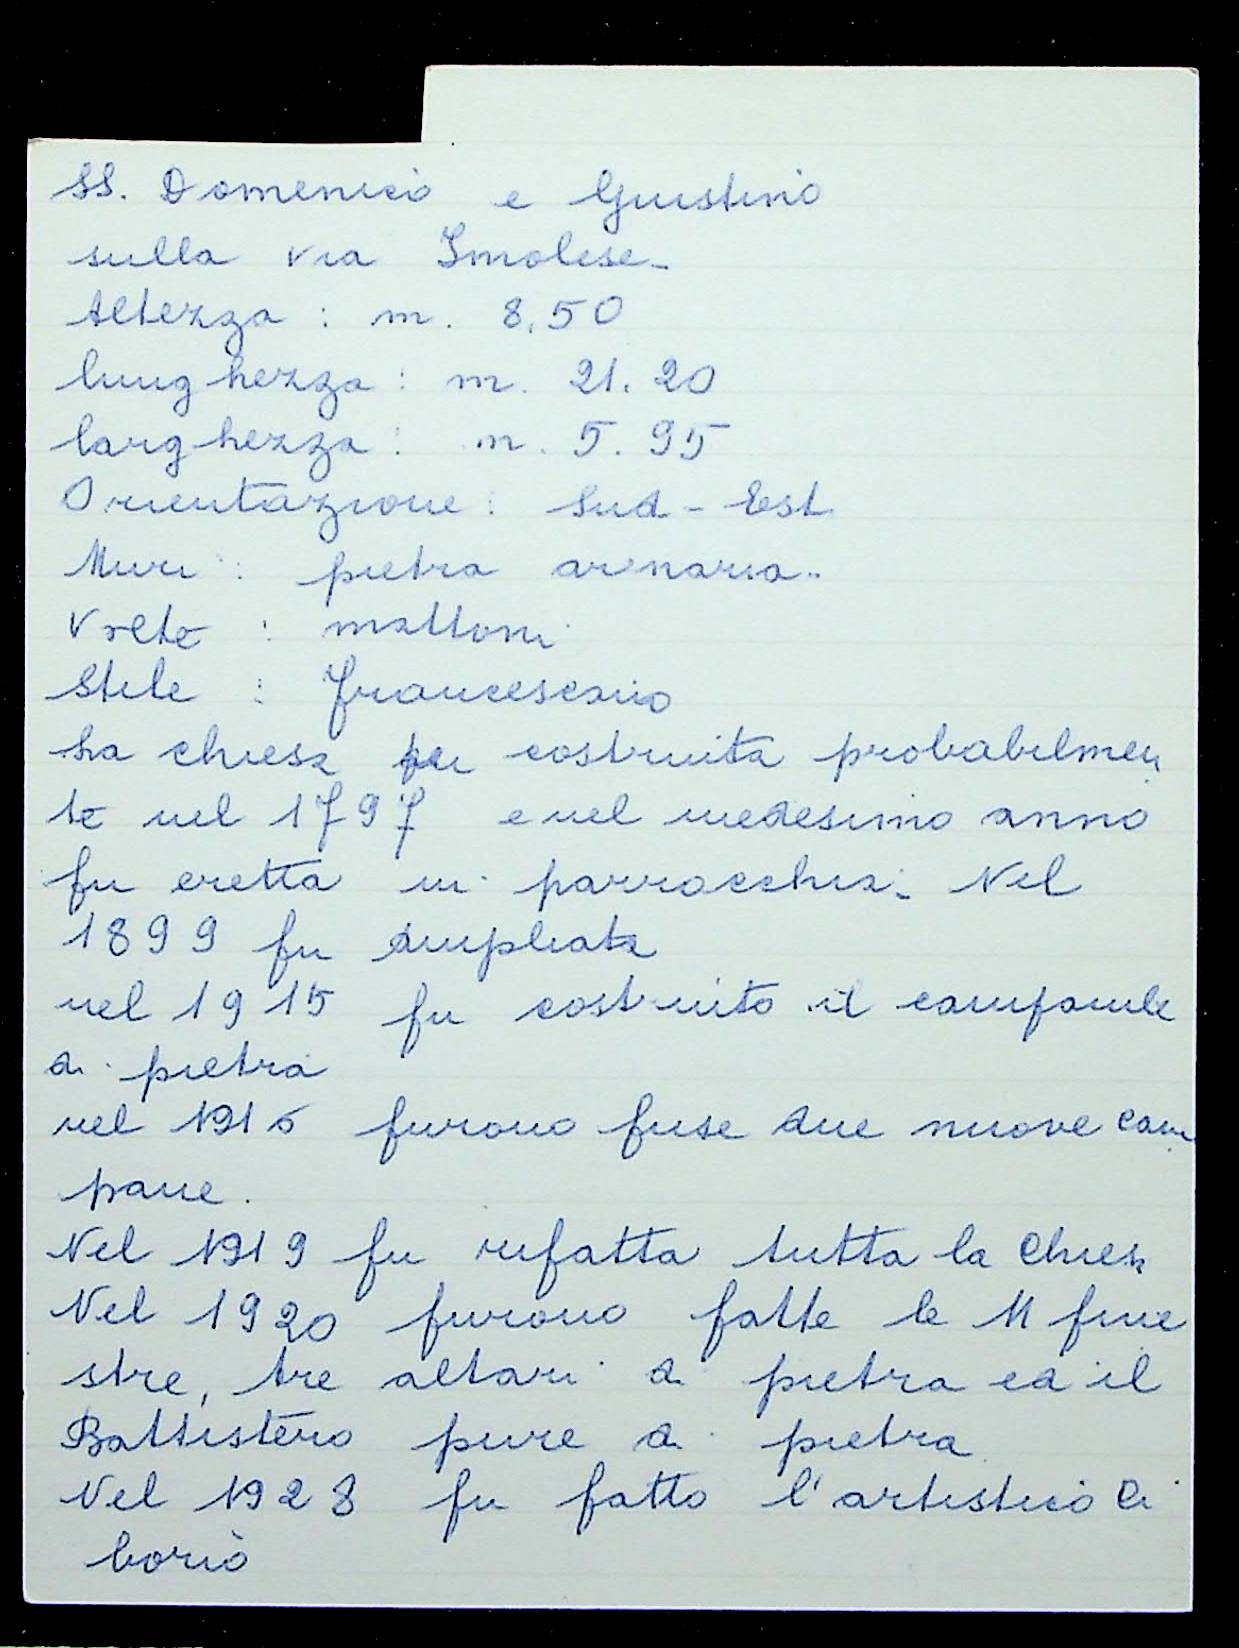 SS. Domenico e Giustino
sulla via Imolese-
Altezza : m. 8,50
lunghezza : m. 21.20
larghezza : m. 5.95
Orientazione : Sud-Est
Muri : pietra arenaria.
Volte : mattoni
Stile : francescano
La chiesa fu costruita probabilmen
te nel 1797 e nel medesimo anno
fu eretta in parrocchia. Nel
1899 fu ampliata
nel 1915 fu costruito il campanile
di pietra
nel 1916 furono fuse due nuove cam
pane.
Nel 1919 fu rifatta tutta la Chiesa
Nel 1920 furono fatte le 11 fine
stre, tre altari di pietra ed il
Battistero pure di pietra
Nel 1928 fu fatto l'artistico Ci
borio